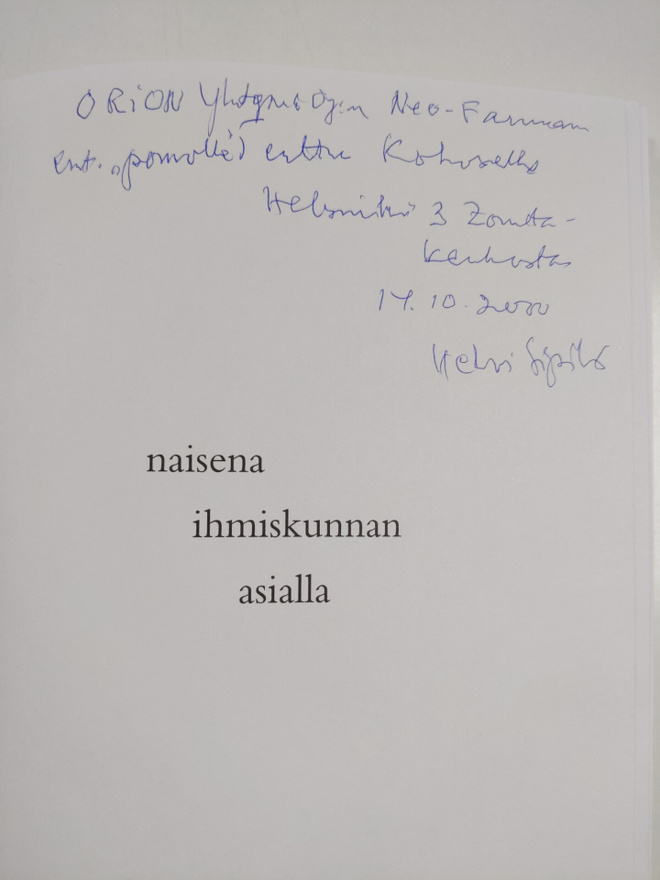 ORION Yhtymä Oy:n Neo-Farman
ent. "pomolle"
Helsinki 3 Zonta-
kerhosta
14.10.2000
Helvi Sipilä
naisena
ihmiskunnan
asialla